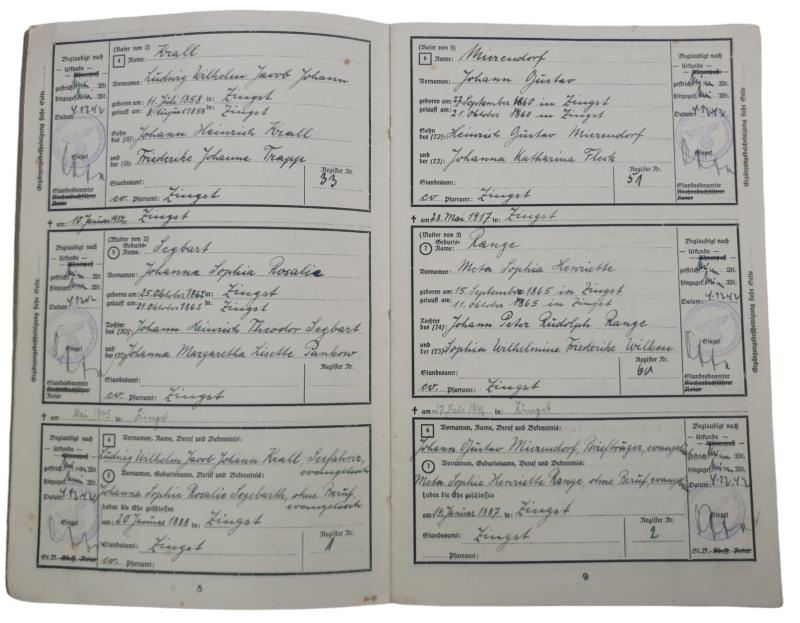 (Vater von 2) Krall
4 Name:
Vornamen: Ludwig Wilhelm Jacob Johann
geboren am: 11. Juli 1858 in: Zingst
getauft am: 8. August 1858 in: Zingst
Sohn des (8): Johann Heinrich Krall
und der (9): Friederike Johanne Trapp
Register Nr. 33
Standesamt:
ev. Pfarramt: Zingst
† am: 10. Januar in: Zingst
Beglaubigt nach
— Urkunde —
Ahnenpaß
gestrichen Wt.
hinzugef. Wt.
4.12.42
Datum:
Siegel
Standesbeamter
Kirchenbuchführer
Notar
Ergänzungsbescheinigung siehe Seite
(Mutter von 2) Segbart
5 Geburts-Name:
Vornamen: Johanna Sophia Rosalie
geboren am: 25. Oktober 1862 in: Zingst
getauft am: 31. Oktober 1862 in: Zingst
Tochter des (10): Johann Heinrich Theodor Segbart
und der (11): Johanna Margaretha Lisette Pankow
Register Nr.
Standesamt:
ev. Pfarramt: Zingst
† am Mai 1945 in: Zingst
Beglaubigt nach
— Urkunde —
Ahnenpaß
gestrichen Wt.
hinzugef. Wt.
Datum: 4.12.42
Siegel
Standesbeamter
Kirchenbuchführer
Notar
Ergänzungsbescheinigung siehe Seite
4 Vornamen, Name, Beruf und Bekenntnis:
Ludwig Wilhelm Jacob Johann Krall Seefahrer,
evangelisch
5 Vornamen, Geburtsname, Beruf und Bekenntnis:
Johanna Sophie Rosalie Segebarth, ohne Beruf,
evangelisch
haben die Ehe geschlossen
am: 20. Januar 1888 in: Zingst
Register Nr. 1
Standesamt: Zingst
ev. Pfarramt:
Beglaubigt nach
— Urkunde —
Ahnenpaß
gestrichen Wt.
hinzugef. Wt.
Datum: 4.12.42
Siegel
St.B. Kbf. Notar
8
(Vater von 3)
6 Name: Mierendorf
Vornamen: Johann Gustav
geboren am: 27. September 1860 in Zingst
getauft am: 21. Oktober 1860 in Zingst
Sohn des (12): Heinrich Gustav Mierendorf
und der (13): Johanna Katharina Fleck
Register Nr. 51
Standesamt:
ev. Pfarramt: Zingst
† am: 28. Mai 1917 in: Zingst
Beglaubigt nach
— Urkunde —
Ahnenpaß
gestrichen Wt.
hinzugef. Wt.
4.12.42
Datum:
Siegel
Standesbeamter
Kirchenbuchführer
Notar
Ergänzungsbescheinigung siehe Seite
(Mutter von 3)
7 Geburts-Name: Range
Vornamen: Meta Sophia Henriette
geboren am: 15. September 1865 in Zingst
getauft am: 11. Oktober 1865 in Zingst
Tochter des (14): Johann Peter Rudolph Range
und der (15): Sophia Wilhelmine Friederike Wilken
Register Nr. 60
Standesamt:
ev. Pfarramt: Zingst
† am: 27. Juli in: Zingst
Beglaubigt nach
— Urkunde —
Ahnenpaß
gestrichen Wt.
hinzugef. Wt.
Datum: 4.12.42
Siegel
Standesbeamter
Kirchenbuchführer
Notar
Ergänzungsbescheinigung siehe Seite
6 Vornamen, Name, Beruf und Bekenntnis:
Johann Gustav Mierendorf, Briefträger,
7 Vornamen, Geburtsname, Beruf und Bekenntnis:
Meta Sophie Henriette Range, ohne Beruf,
haben die Ehe geschlossen
am: 14. Januar 1887 in: Zingst
Register Nr. 2
Standesamt: Zingst
Pfarramt:
Beglaubigt nach
— Urkunde —
Ahnenpaß
gestrichen Wt.
hinzugef. Wt.
Datum: 4.12.42
Siegel
St.B. Kbf. Notar
9